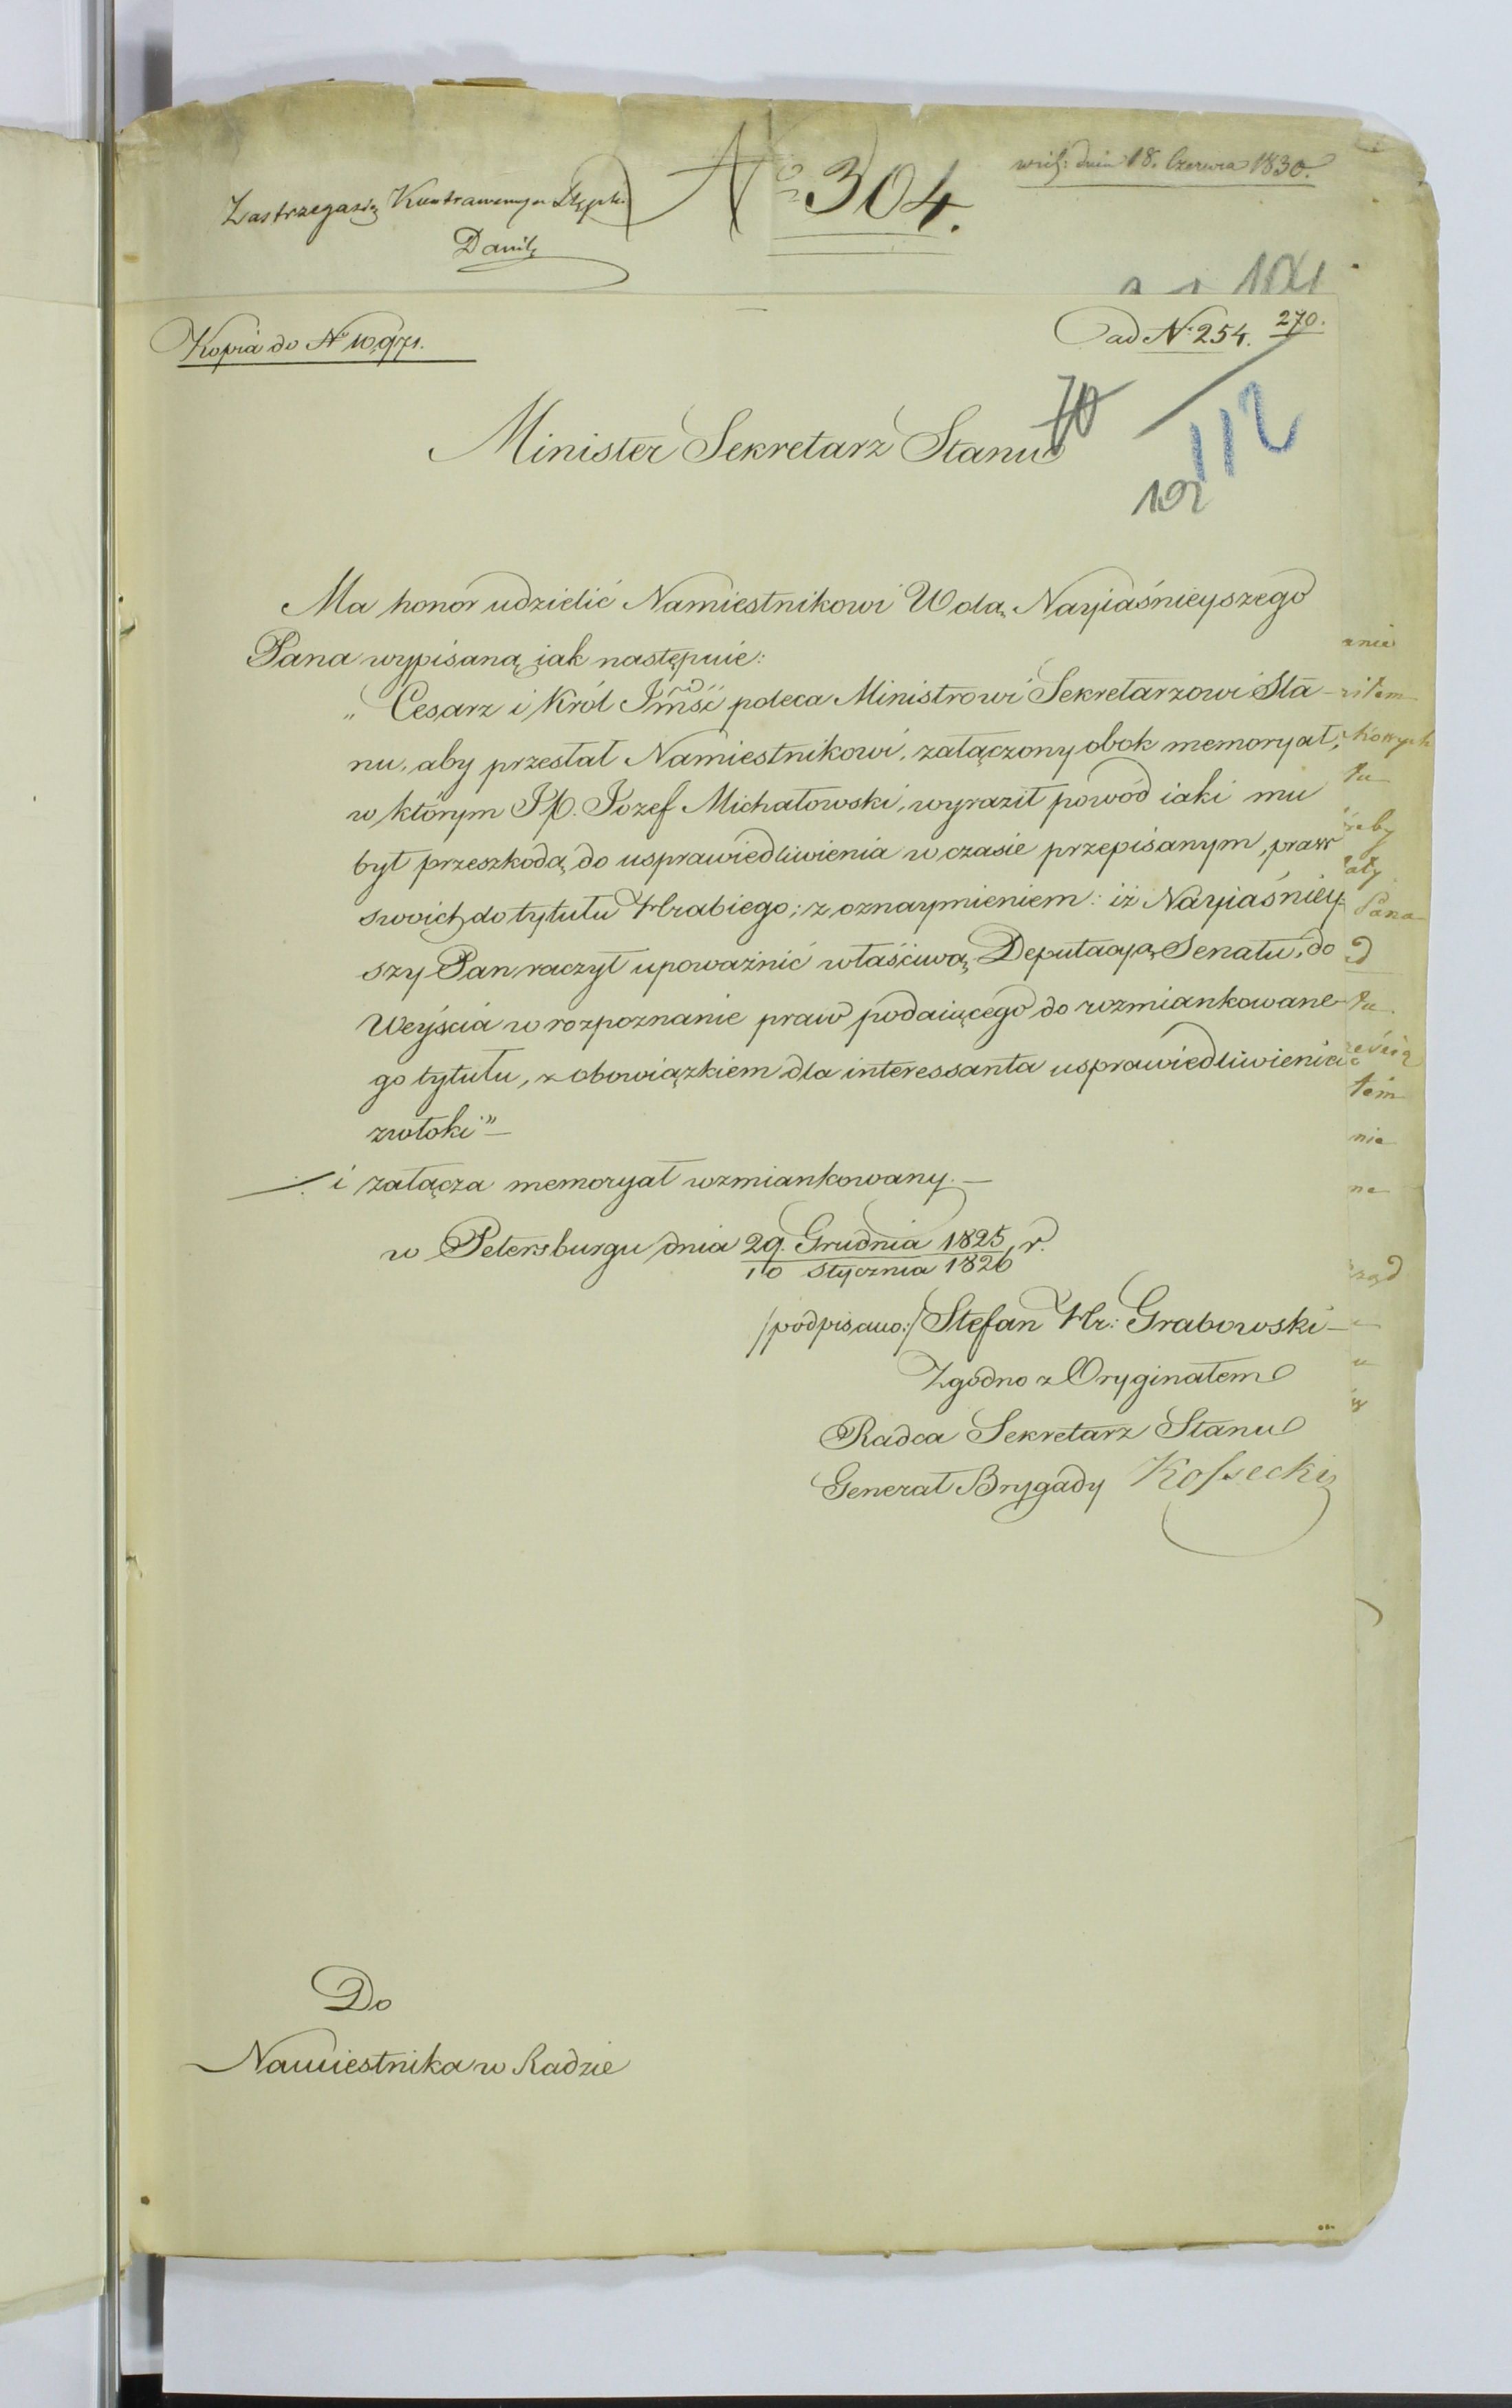 wnij: dnia 18. Czerwca 1830.
Nº 304.
Kopia do Nº 10,971.
ad Nº 254. 270.
70
112
102
Minister Sekretarz Stanu
Ma honor udzielić Namiestnikowi Wolą Nayiaśnieyszego
Pana wypisaną iak następuie:
„ Cesarz i Król Jmść poleca Ministrowi Sekretarzowi Sta-
nu, aby przesłał Namiestnikowi, załączony obok memoryał,
w którym JP. Jozef Michałowski, wyraził powód iaki mu
był przeszkodą do usprawiedliwienia w czasie przepisanym, praw
swoich do tytułu Hrabiego; z oznaymieniem: iż Nayiaśniey-
szy Pan raczył upoważnić właściwą Deputacyą Senatu, do
Weyścia w rozpoznanie praw podaiącego do wzmiankowane-
go tytułu, z obowiązkiem dla interessanta usprawiedliwienia
zwłoki" —
./. i załącza memoryał wzmiankowany. —
w Petersburgu dnia 29. Grudnia 1825 r.
10 Stycznia 1826
/podpisano:/ Stefan Hr: Grabowski —
Zgodno z Oryginałem
Radca Sekretarz Stanu
Generał Brygady Kossecki
Do
Namiestnika w Radzie